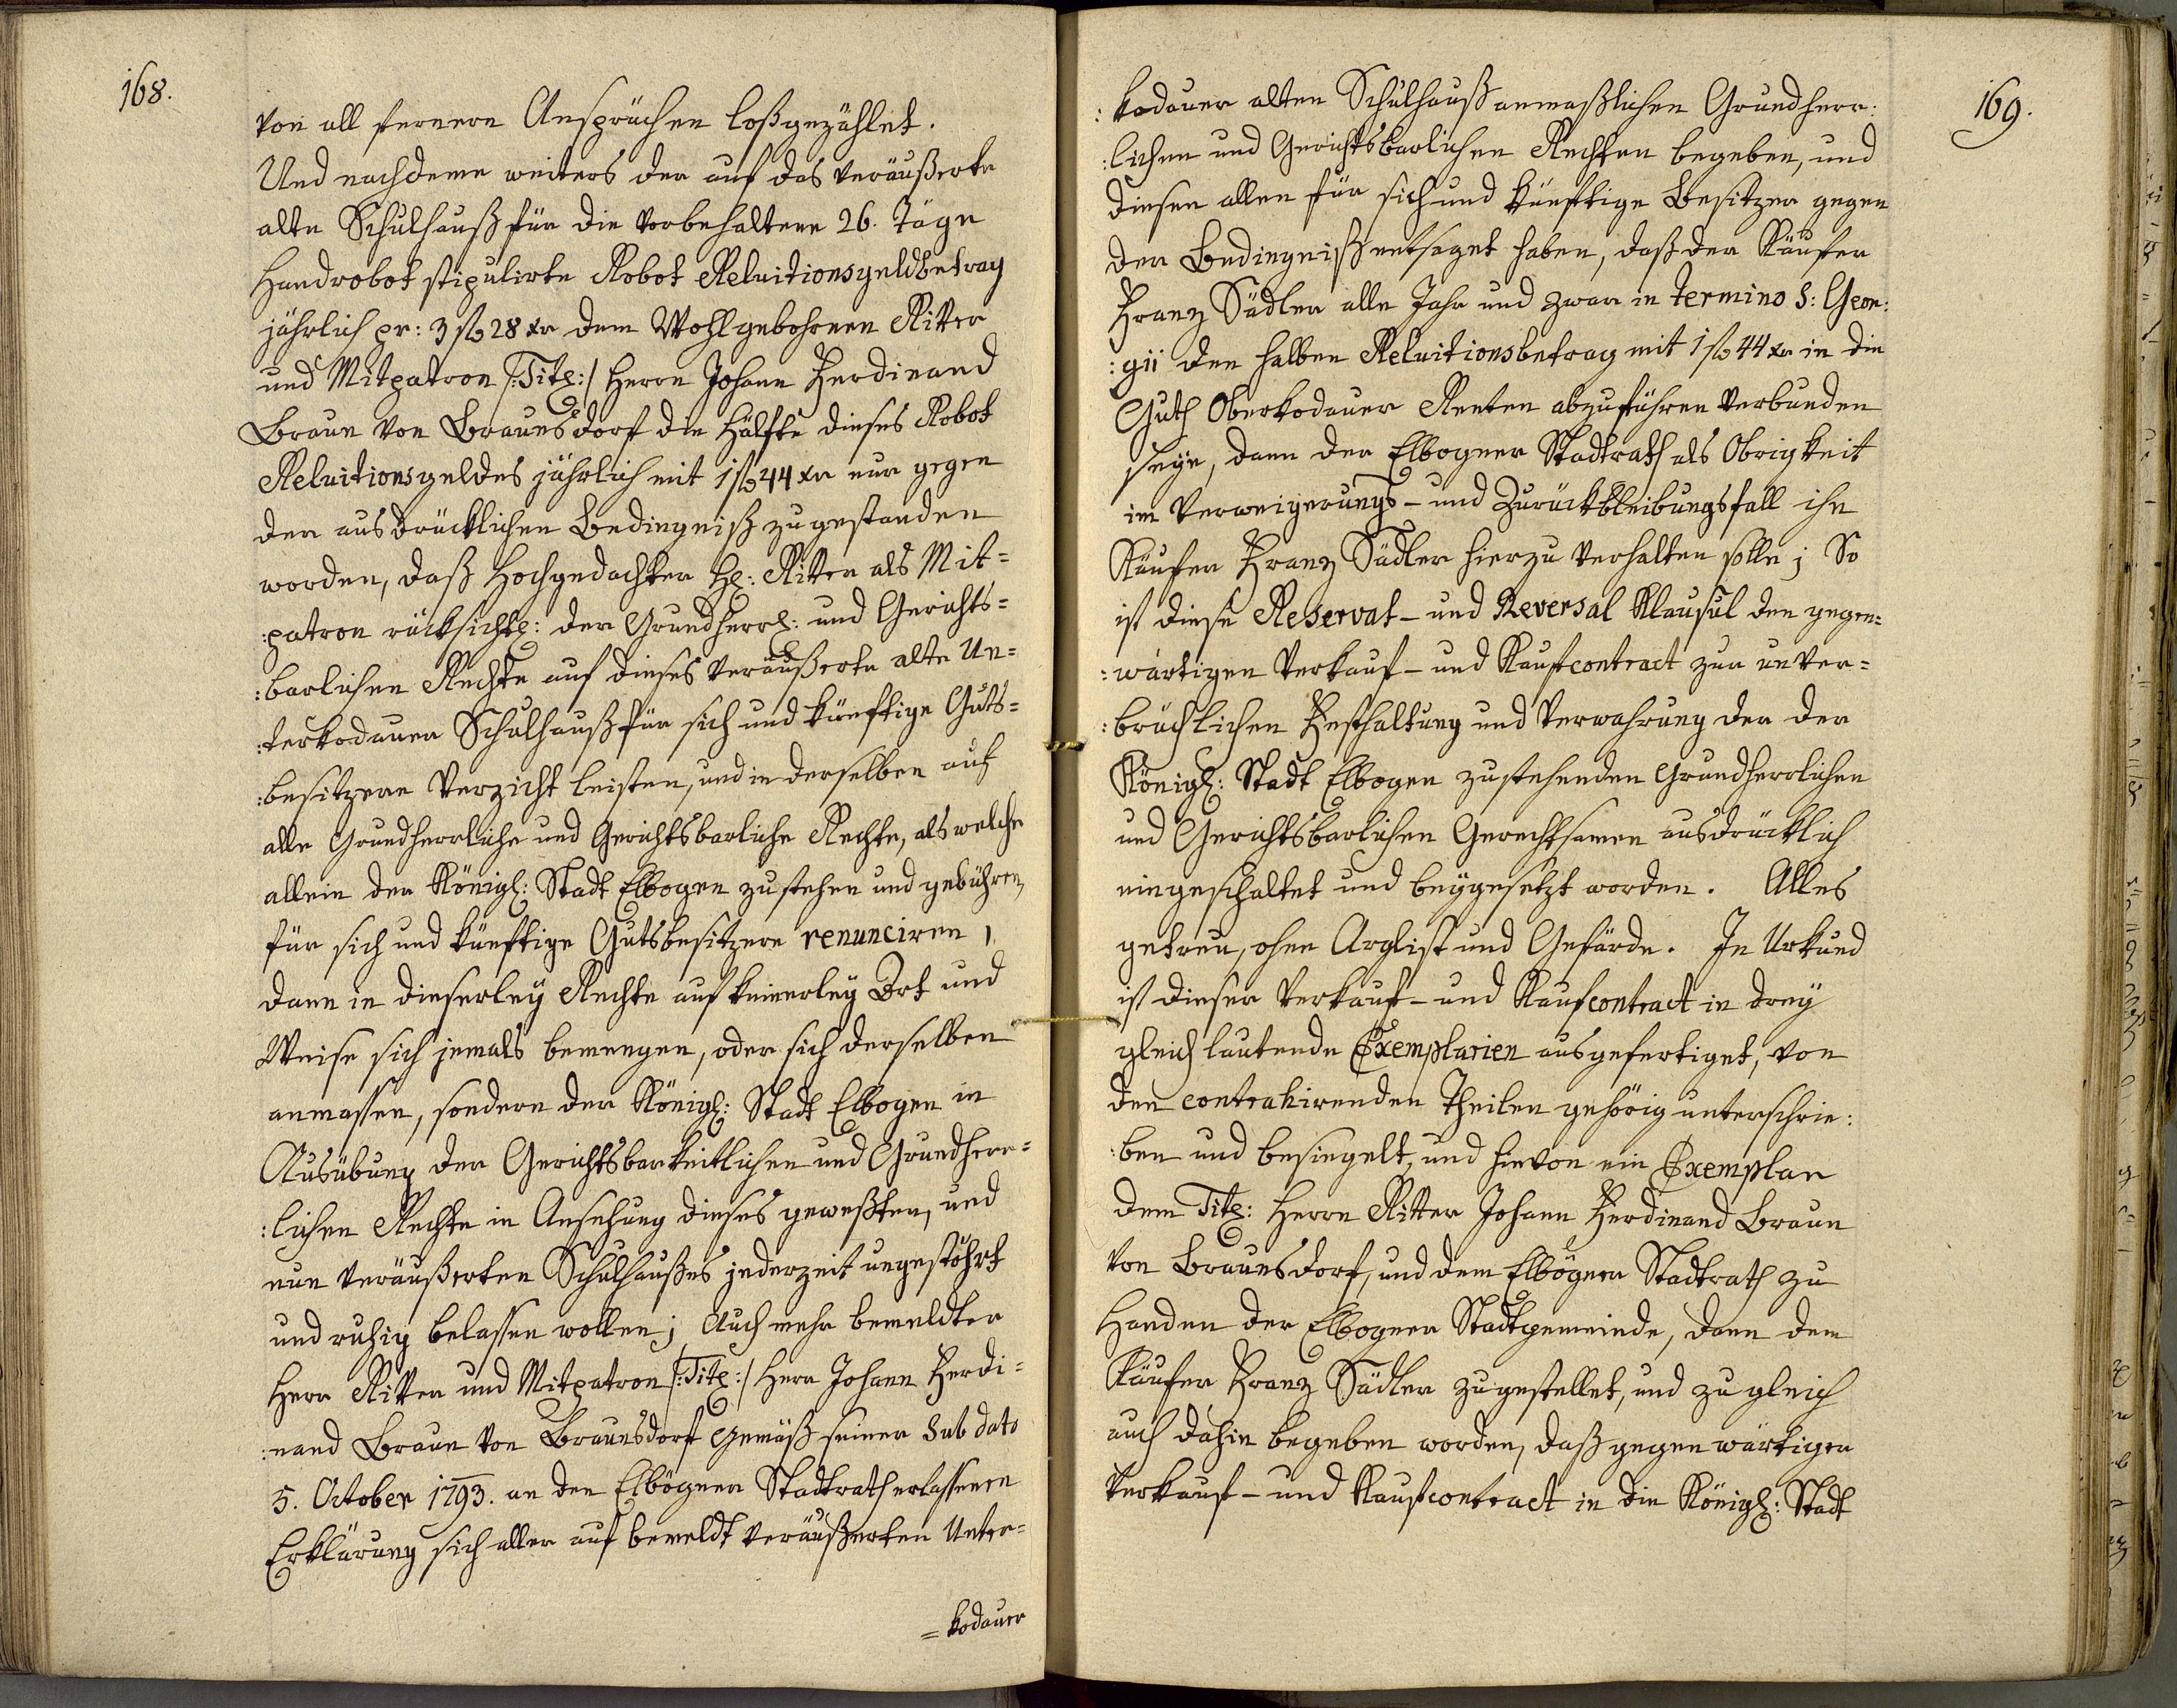 168.
von all fernern Ansprüchen loßgezählet.
Und nachdeme weiters der auf das veräußerte
alte Schulhauß für die vorbehaltene 26. Täge
Handrobot stipulirte Robot Reluitionsgeldbetrag
jährlich pr: 3 fl 28 xr dem Wohlgebohrnen Ritter
und Mitpatron /:Titl:/ Herrn Johann Ferdinand
Braun von Braunsdorf die Hälfte dieses Robot
Reluitionsgeldes jährlich mit 1 fl 44 xr nur gegen
der ausdrücklichen Bedingniß zugestanden
worden, daß Hochgedachter Hl: Ritter als Mit=
:patron rücksichtl: der Grundherrl: und Gerichts=
:barlichen Rechte auf dieses veräußerte alte Un=
:terkodauer Schulhauß für sich und künftige Guts=
:besitzere Verzicht leisten, und in derselben auf
alle Grundherrliche und Gerichtsbarliche Rechte, als welche
allein der Königl: Stadt Elbogen zustehen und gebühren,
für sich und künftige Gutsbesitzere renunciren,
dann in dieserley Rechte auf keinerley Ort und
Weise sich jemals bemengen, oder sich derselben
anmassen, sondern der Königl: Stadt Elbogen in
Ausübung der Gerichtsbarkeitlichen und Grundherr=
:lichen Rechte in Ansehung dieses geweßten, und
nun veräußerten Schulhaußes jederzeit ungestöhrt
und ruhig belassen wollen; Auch mehr bemeldter
Herr Ritter und Mitpatron /:Titl:/ Herr Johann Ferdi=
:nand Braun von Braunsdorf Gemäß seiner Sub dato
5. October 1793. an den Elbögner Stadtrath erlassenen
Erklärung sich aller auf bemeldt veräußerten Unter=
=kodauer
169.
:kodauer alten Schulhauß anmaßlichen Grundherr:
:lichen und Gerichtsbarlichen Rechten begeben, und
diesen allen für sich und künftige Besitzer gegen
der Bedingniß entsaget haben, daß der Käufer
Franz Sädler alle Jahr und zwar in termino S: Geor:
:gii den halben Reluitionsbetrag mit 1 fl 44 xr in die
Guth Oberkodauer Renten abzuführen verbunden
seye, dann der Elbogner Stadtrath als Obrigkeit
im Verweigerungs- und Zurückbleibungsfall ihn
Käufer Franz Sädler hierzu verhalten solle; So
ist diese Reservat- und Reversal Klausul den gegen=
:wärtigen Verkauf- und Kaufcontract zur unver=
:brüchlichen Festhaltung und Verwahrung der der
Königl: Stadt Elbogen zustehenden Grundherrlichen
und Gerichtsbarlichen Gerechtsamen ausdrücklich
eingeschaltet und beygesetzt worden. Alles
getreu, ohne Arglist und Gefärde. In Urkund
ist dieser Verkauf- und Kaufcontract in drey
gleich lautende Exemplarien ausgefertiget, von
den contrahirenden Theilen gehörig unterschrie:
:ben und besiegelt, und hievon ein Exemplar
dem Titl: Herrn Ritter Johann Ferdinand Braun
von Braunsdorf, und dem Elbögner Stadtrath zu
Handen der Elbogner Stadtgemeinde, dann dem
Käufer Franz Sädler zugestellet, und zugleich
auch dahin begeben worden, daß gegenwärtiger
Verkauf- und Kaufcontract in die Königl: Stadt